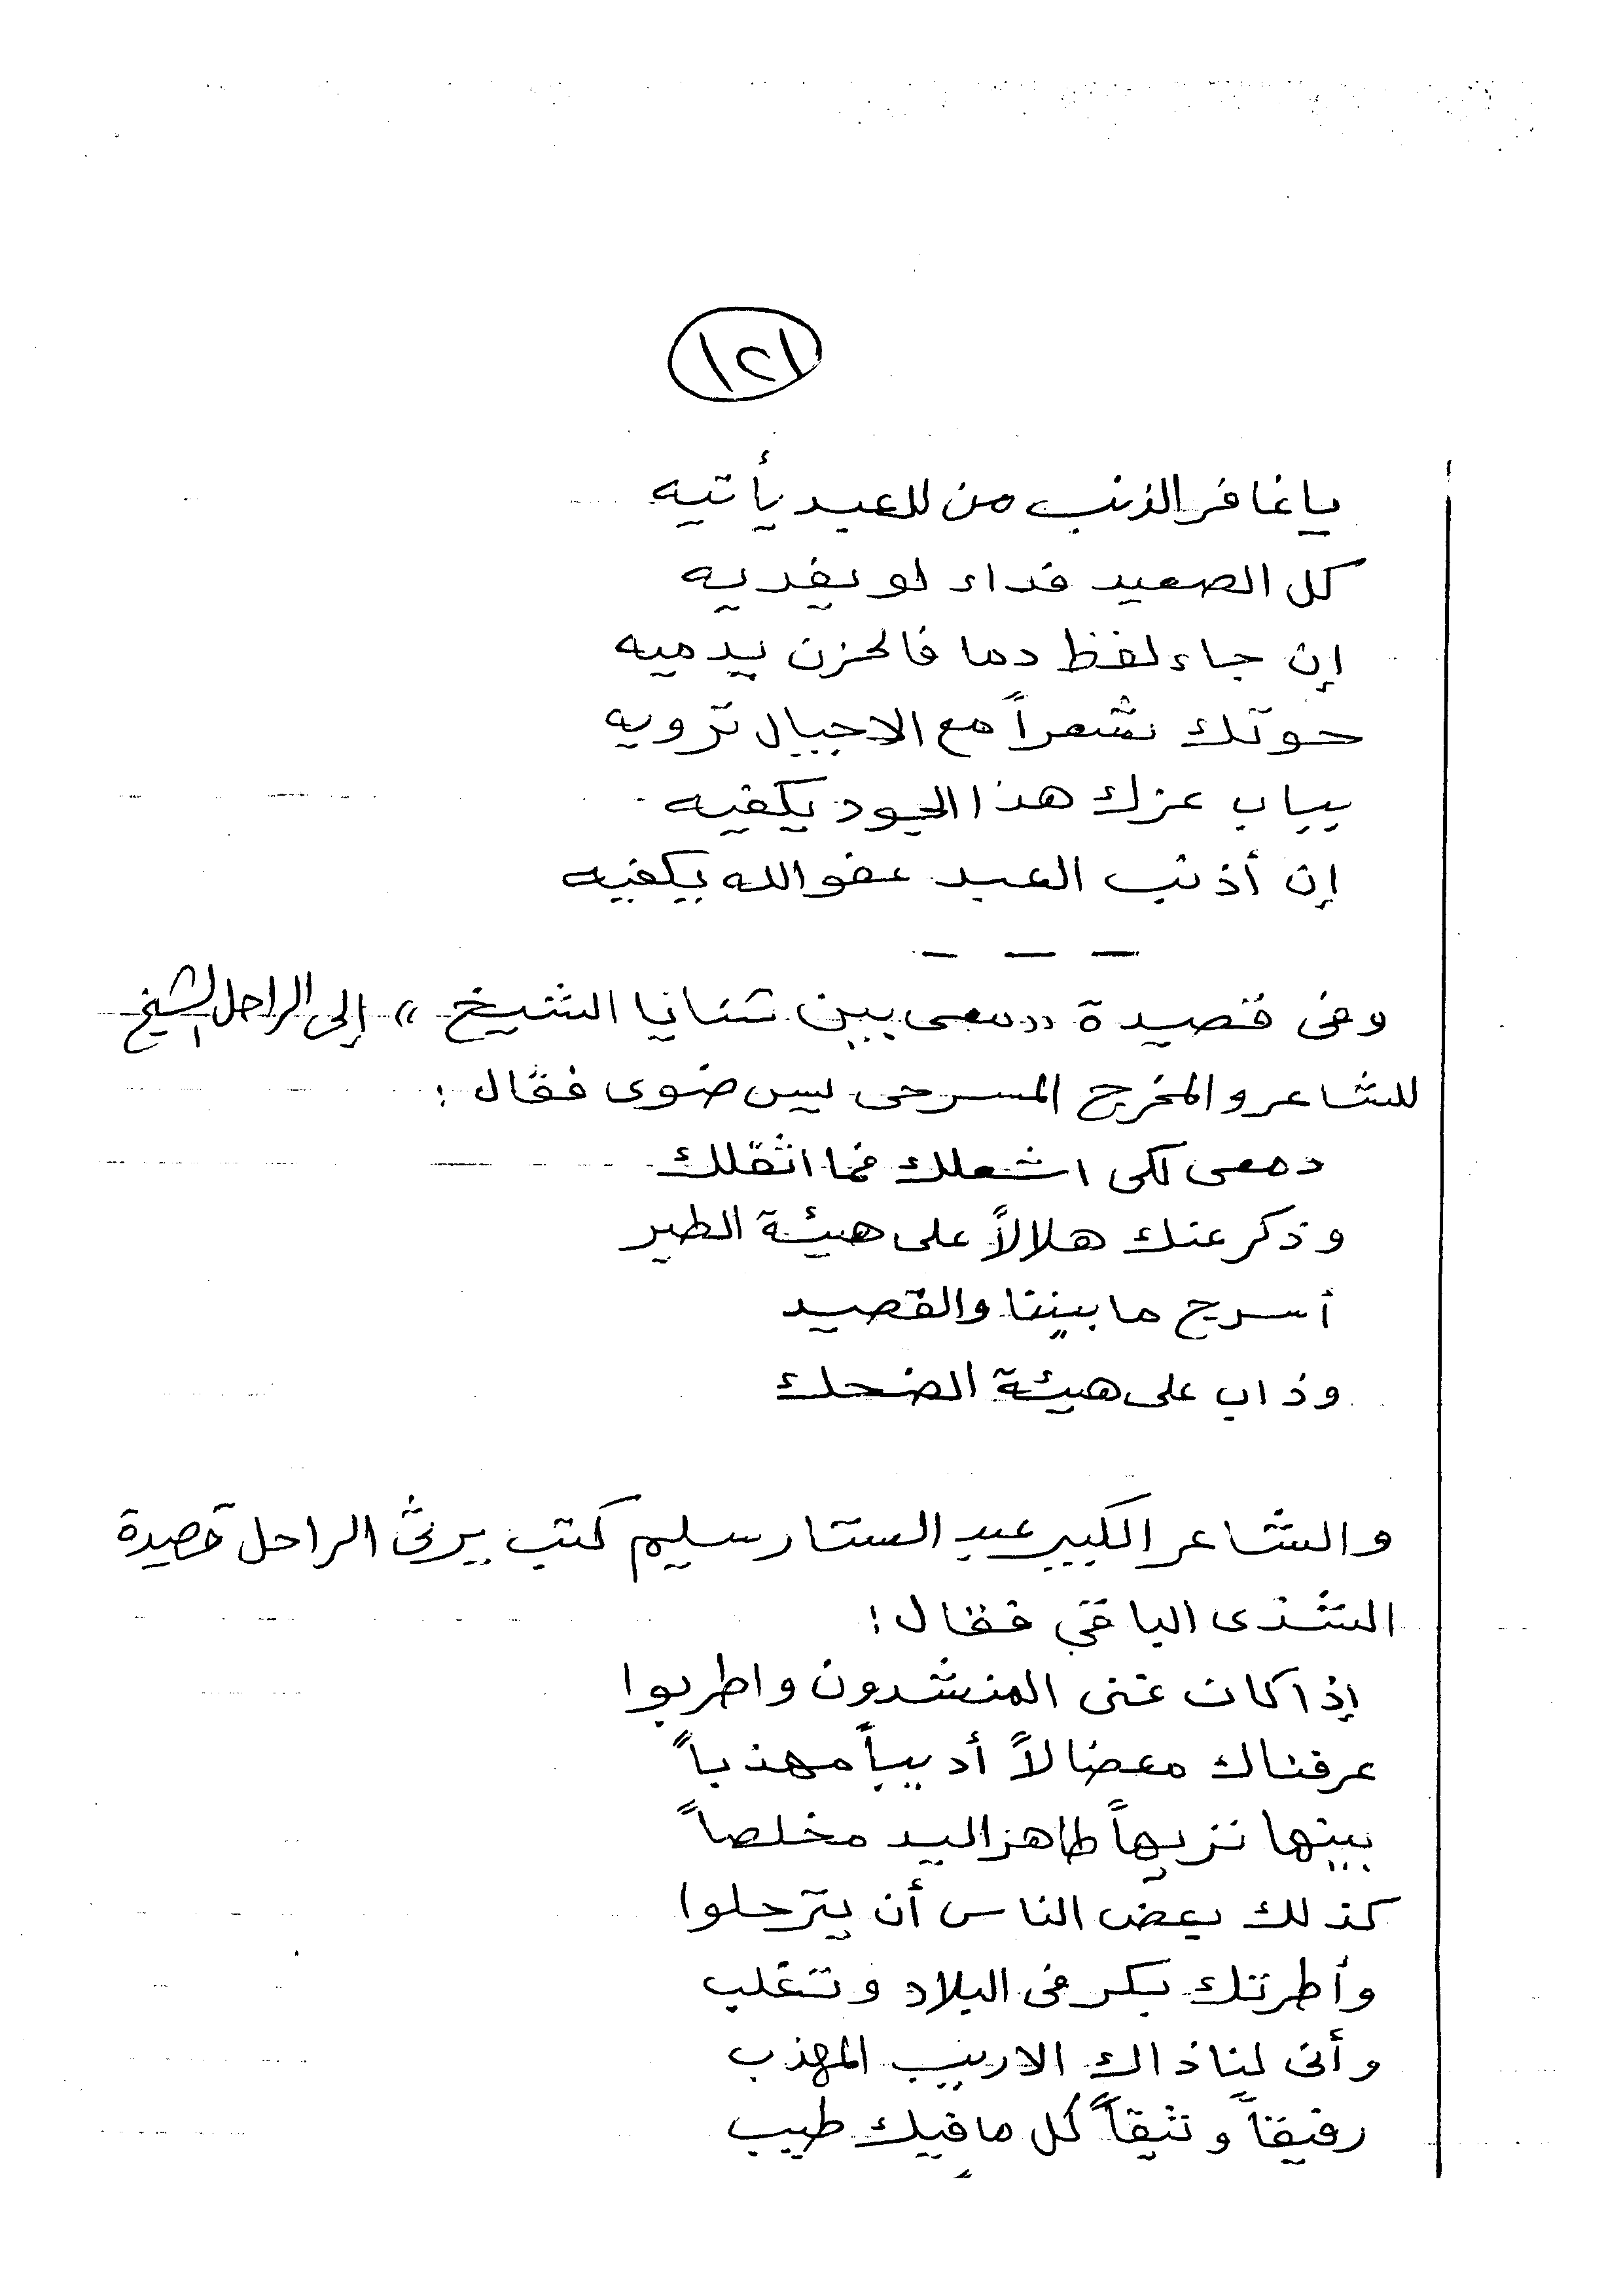 ١٢١
ياغافر الذنب من للعبد يأتيه
كل الصعيد فداء لو يفديه
إن جاء لفظ دما فالحزن يدميه
حوتك شعراً مع الاجيال ترويه
بباب عزك هذا الجود يكفيه
إن أذنب العبد عفو الله يكفيه
وفى قصيدة « دمعى بين ثنايا الشيخ » إلى الراحل الشيخ
للشاعر والمخرج المسرحى يس ضوى فقال :
دمعى لكى اشعلك فما اثقلك
وذكر عنك هلالاً على هيئة الطير
أسرج ما بيننا والقصيد
وذاب على هيئة الضحك
والشاعر الكبير عبد الستار سليم كتب يرثى الراحل قصيدة
الشذى الباقي فقال :
إذا كان غنى المنشدون واطربوا
عرفناك مفضالاً أديباً مهذباً
بينها نزيهاً طاهر اليد مخلصاً
كذلك بعض الناس أن يترحلوا
وأطرتك بكر فى البلاد وتغلب
وأنى لنا ذاك الاريب المهذب
رقيقاً وثيقاً كل ما فيك طيب